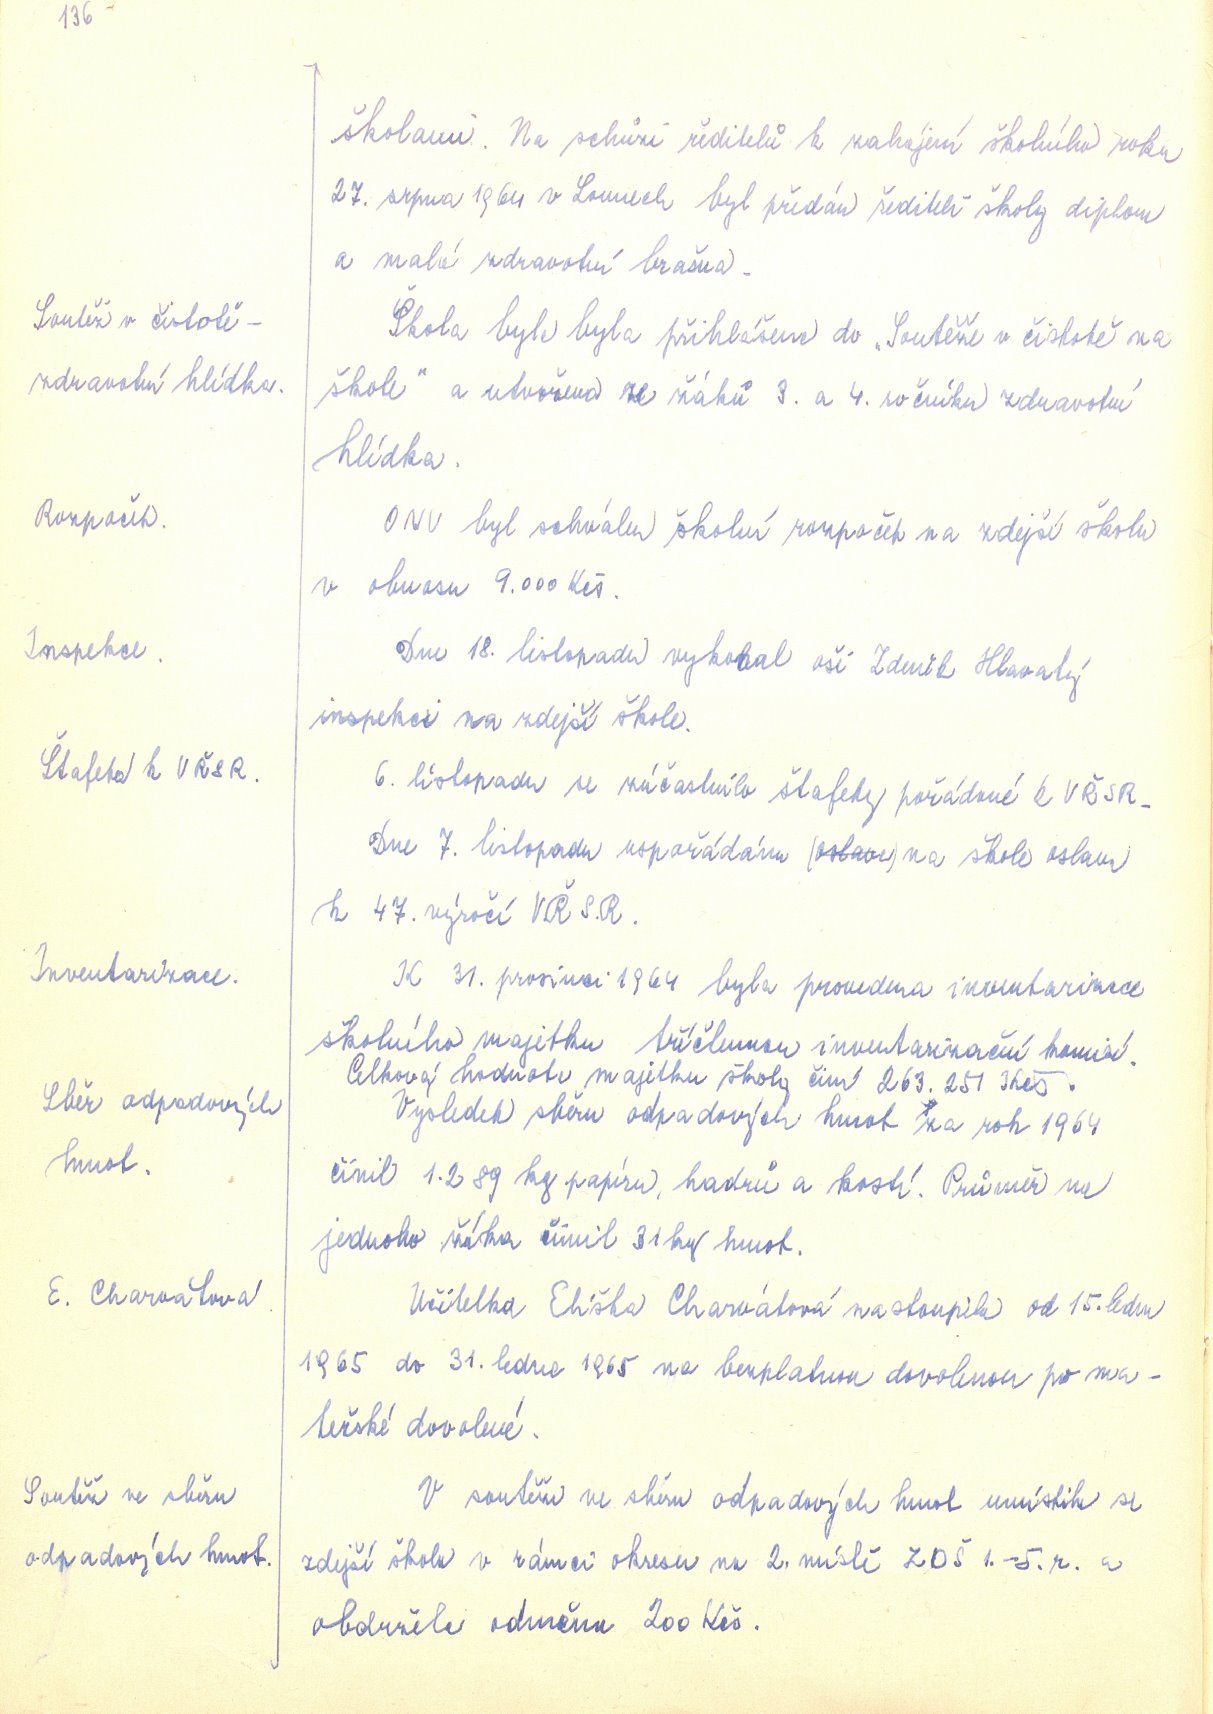 136
školami. Na schůzi ředitelů k zahájení školního roku
27. srpna 1964 v Lounech byl předán řediteli školy diplom
a malá zdravotní brašna.
Soutěž v čistotě –
zdravotní hlídka.
Škola byla byla přihlášena do „Soutěže v čistotě na
škole" a utvořena ze žáků 3. a 4. ročníku zdravotní
hlídka.
Rozpočet.
ONV byl schválen školní rozpočet na zdejší školu
v obnosu 9.000 Kčs.
Inspekce.
Dne 18. listopadu vykonal oší Zdeněk Hlavatý
inspekci na zdejší škole.
Štafeta k VŘSR.
6. listopadu se zúčastnilo štafety pořádané k VŘSR.
Dne 7. listopadu uspořádána (oslava) na škole oslava
k 47. výročí VŘS.R.
Inventarizace.
K 31. prosinci 1964 byla provedena inventarizace
školního majetku tříčlennou inventarizační komisí.
Celková hodnota majetku školy činí 263.251 Kčs.
Sběr odpadových
hmot.
Výsledek sběru odpadových hmot za rok 1964
činil 1.289 kg papíru, hadrů a kostí. Průměr na
jednoho žáka činil 31 kg hmot.
E. Charvátová
Učitelka Eliška Charvátová nastoupila od 15. ledna
1965 do 31. ledna 1965 na bezplatnou dovolenou po ma-
teřské dovolené.
Soutěž ve sběru
odpadových hmot.
V soutěži ve sběru odpadových hmot umístila se
zdejší škola v rámci okresu na 2. místě ZDŠ 1.–5. r. a
obdržela odměnu 200 Kčs.